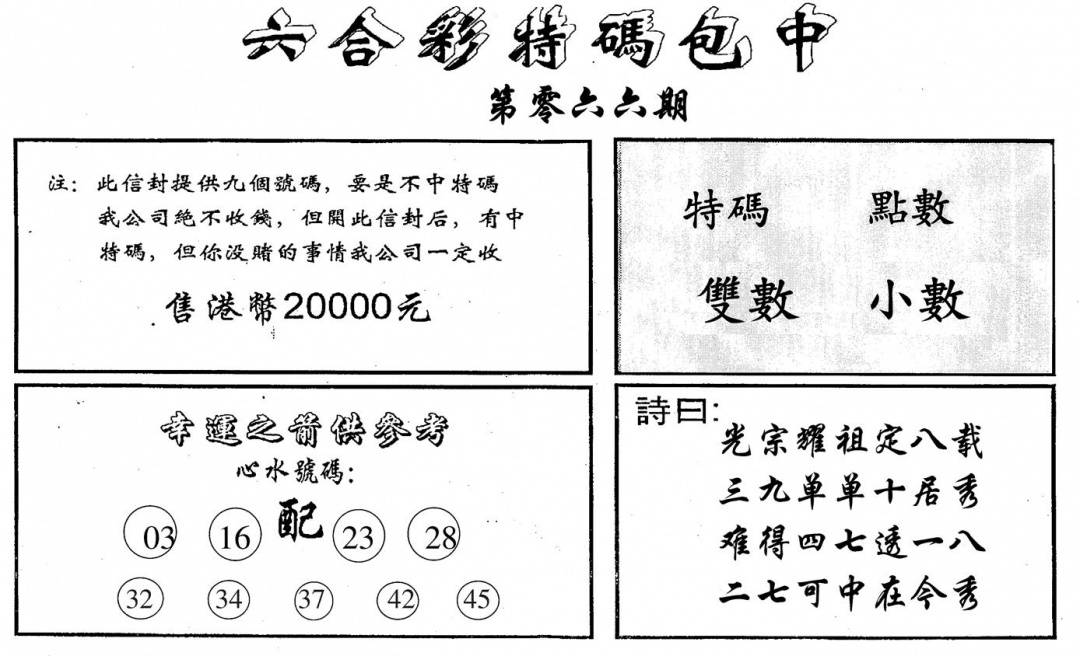 六合彩特碼包中
第零六六期
注：此信封提供九個號碼，要是不中特碼
我公司絕不收錢，但開此信封后，有中
特碼，但你没賭的事情我公司一定收
售港幣20000元
特碼 點數
雙數 小數
幸運之箭供參考
心水號碼：
03 16 配 23 28
32 34 37 42 45
詩曰：
光宗耀祖定八载
三九单单十居秀
难得四七透一八
二七可中在今秀